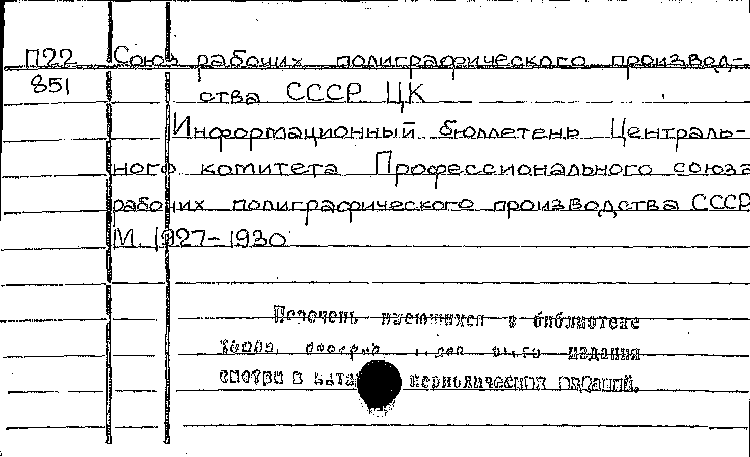 П22 Союз рабочих полиграфического производ-
851 ства СССР ЦК
Информационный бюллетень Централь-
ного комитета Профессионального союза
рабочих полиграфического производства СССР
М. 1927-1930
Перечень имеющихся в библиотеке
издания
смотри в периодических изданий.